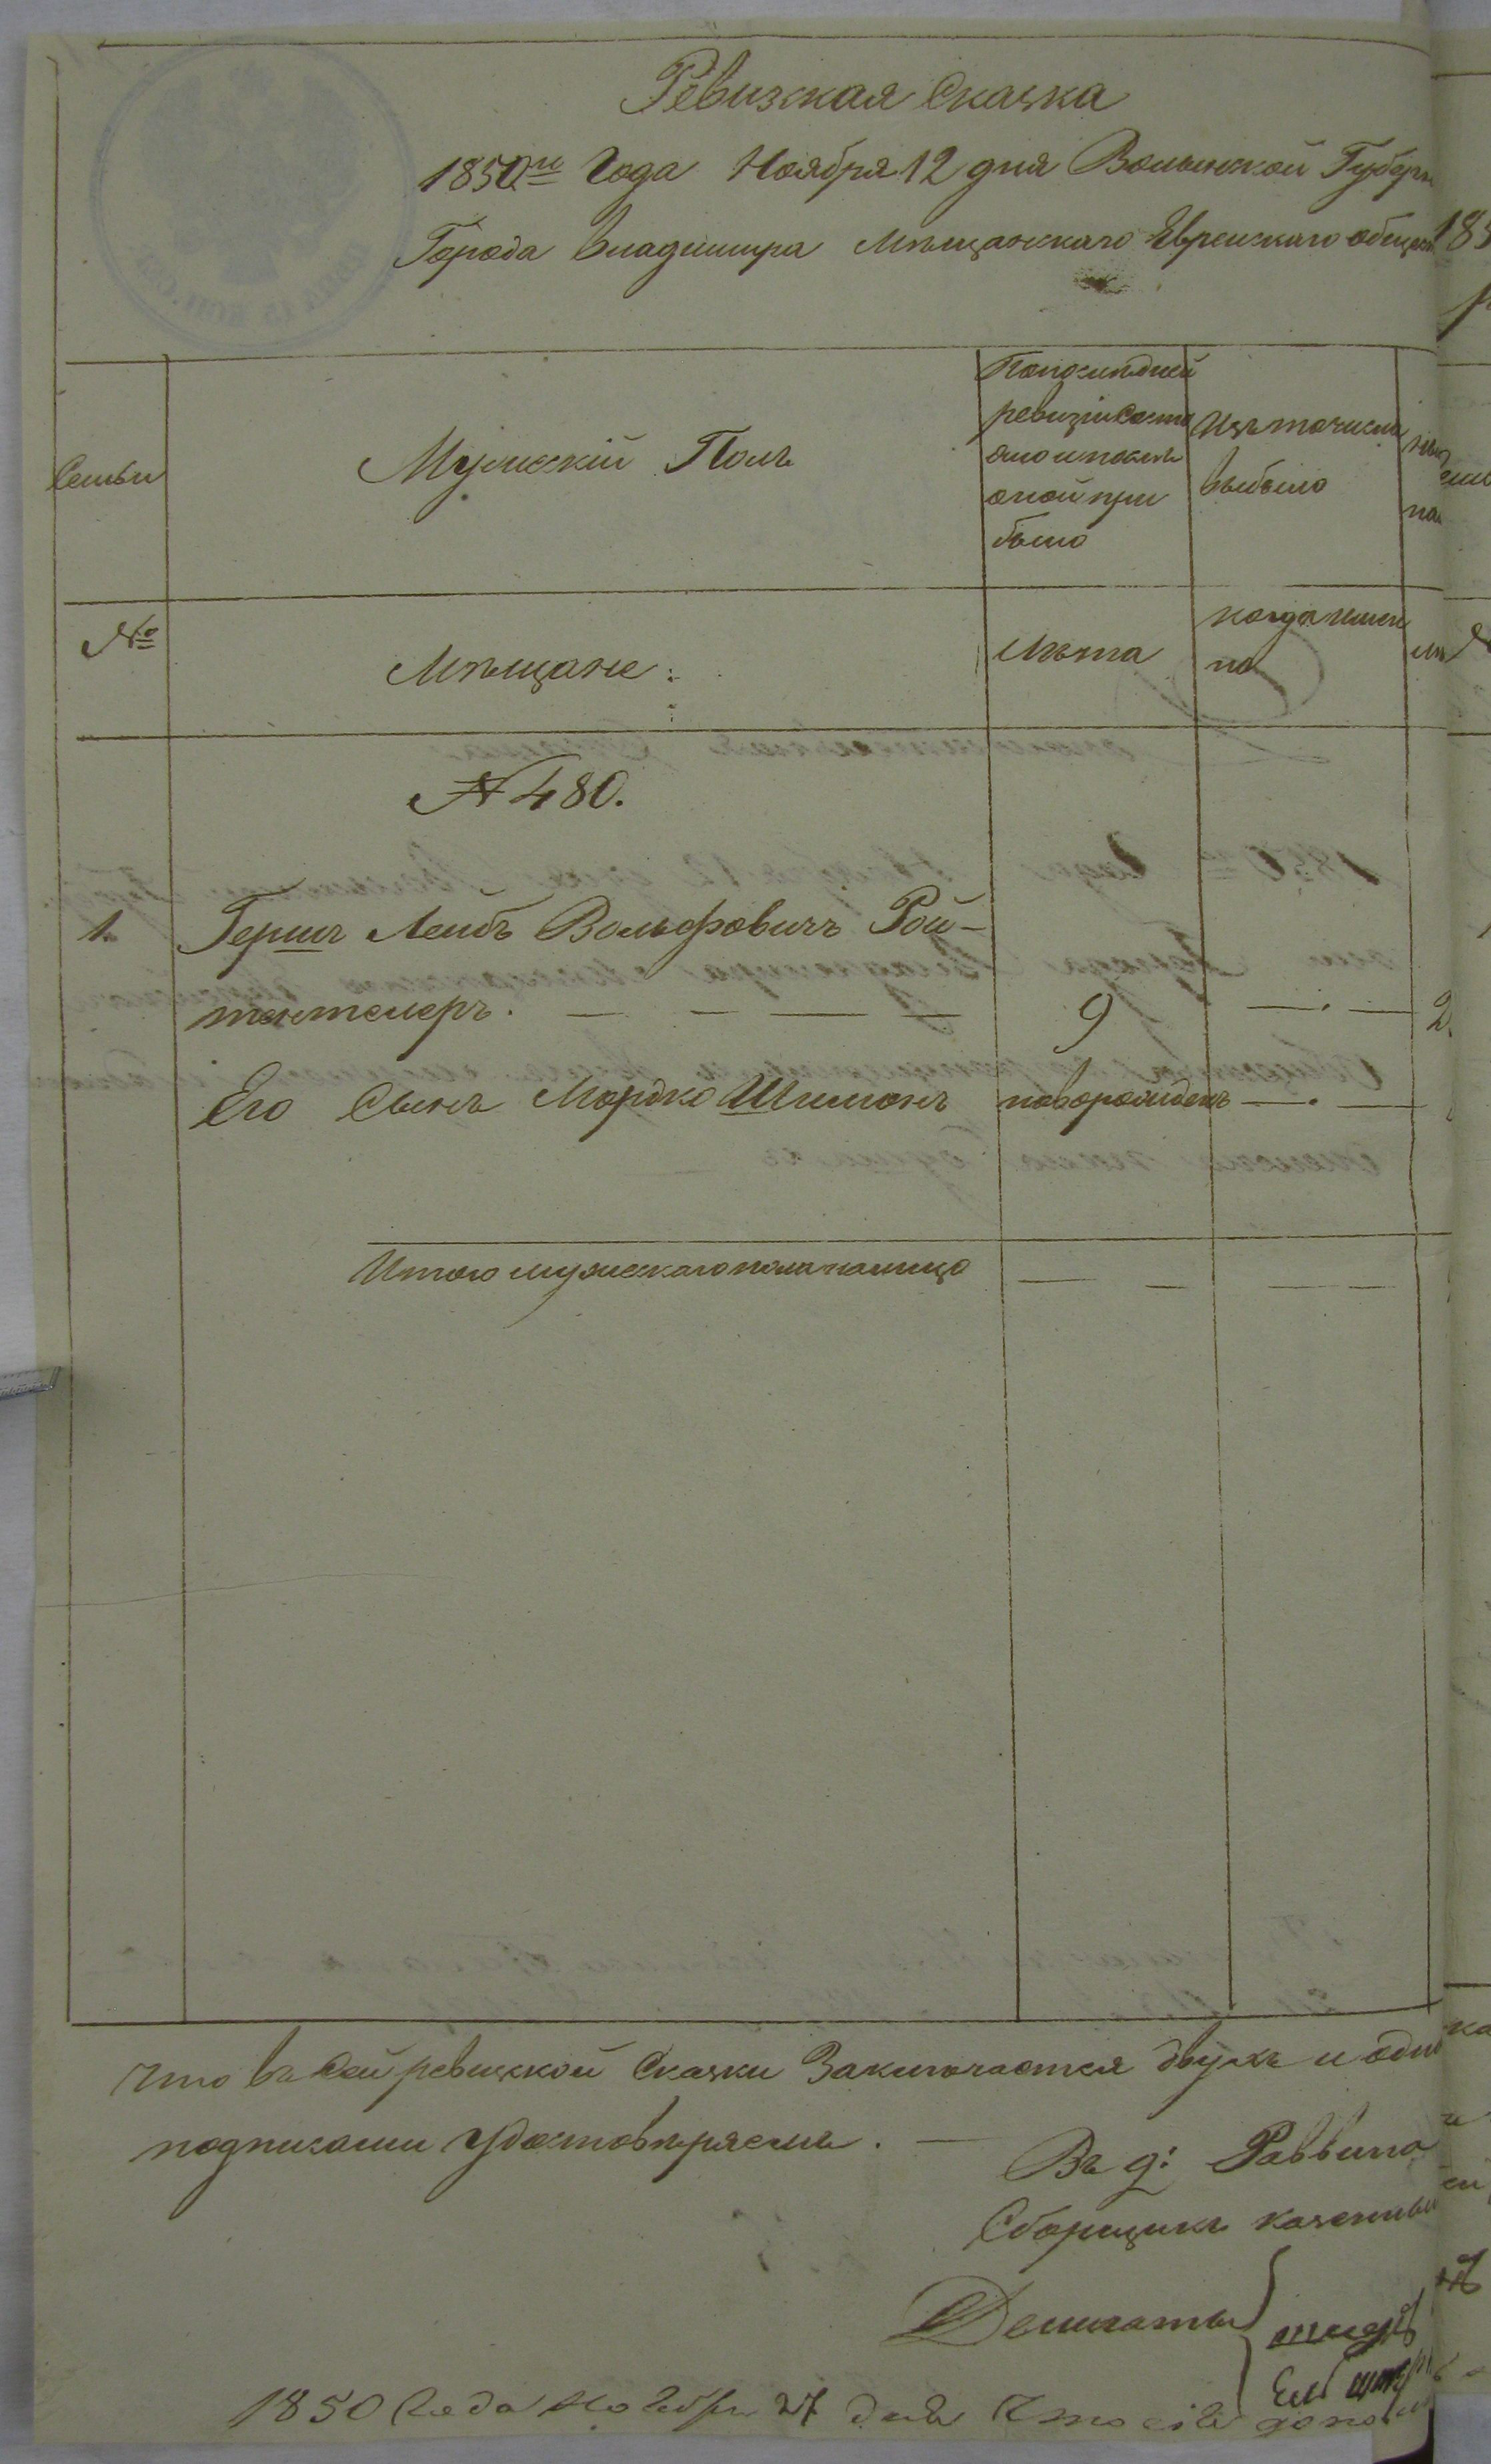 Ревизская Сказка
1850го Года Ноября 12 дня Волынской Губерн
Города Владимира Мѣщанскаго Еврейскаго общест
Семьи
Мужескій Полъ
По последней
ревизіи состо
яло и после
оной при
было
Изъ того числа
выбыло
№
Мѣщане:
Лѣта
когда имен
но
№ 480.
1. Гершъ Лейбъ Вольфовичъ Рой-
тентелеръ. — — — — 9 — . — 2
Его Сынъ Мордко Шимонъ новорожденъ — . —
Итого мужескаго пола налицо — — — —
Что въ сей ревизской Сказки Заключается двухъ и одно
подписами удостовѣряемъ. —
Въ д: Раввина
Сборщикъ казенны
Депутаты
1850 Года Ноября 27 дня Что сія допо